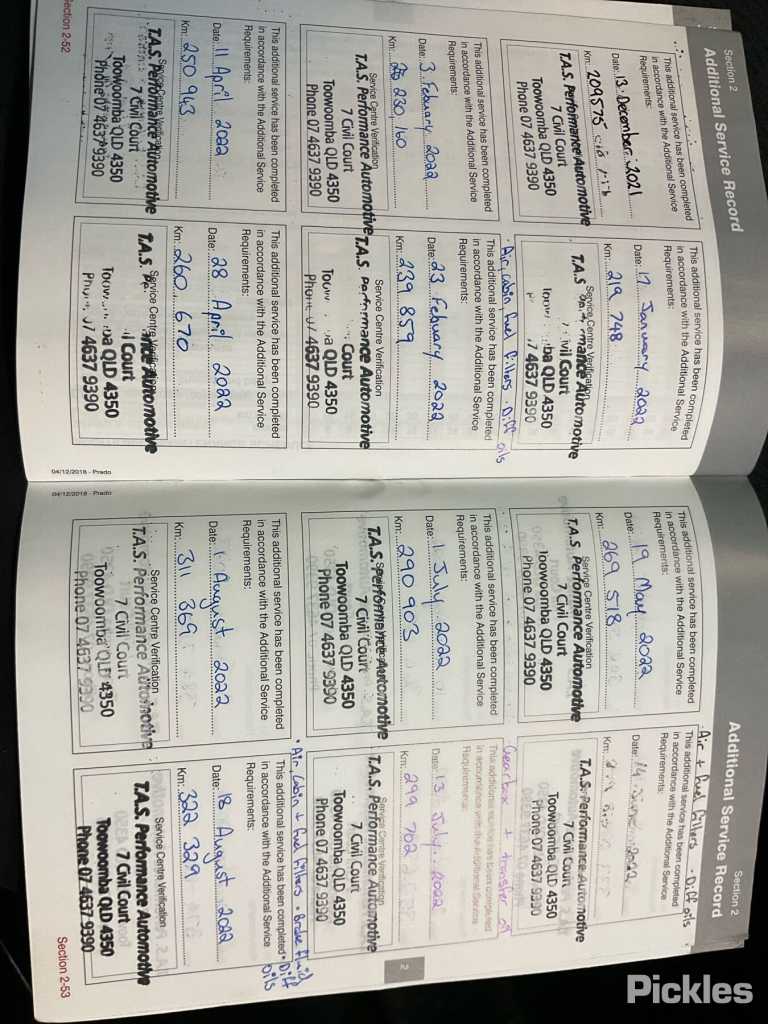 Section 2
Additional Service Record
This additional service has been completed
in accordance with the Additional Service
Requirements:
Date: 13 December 2021
Km: 209575
T.A.S. Performance Automotive
7 Civil Court
Toowoomba QLD 4350
Phone 07 4637 9390
This additional service has been completed
in accordance with the Additional Service
Requirements:
Date: 17 January 2022
Km: 219 748
Service Centre Verification
T.A.S mance Automotive
ivil Court
ba QLD 4350
7 4637 9390
This additional service has been completed
in accordance with the Additional Service
Requirements:
Date: 3 February 2022
Km: 230,160
Service Centre Verification
T.A.S. Performance Automotive
7 Civil Court
Toowoomba QLD 4350
Phone 07 4637 9390
• Air, Cabin fuel filters • Diff oils
This additional service has been completed
in accordance with the Additional Service
Requirements:
Date: 23 February 2022
Km: 239 859
Service Centre Verification
T.A.S. Performance Automotive
Court
ba QLD 4350
07 4637 9390
This additional service has been completed
in accordance with the Additional Service
Requirements:
Date: 11 April 2022
Km: 250 943
Service Centre Verification
T.A.S. Performance Automotive
7 Civil Court
Toowoomba QLD 4350
Phone 07 4637 9390
This additional service has been completed
in accordance with the Additional Service
Requirements:
Date: 28 April 2022
Km: 260 670
Service Centre Verification
T.A.S. ance Automotive
Court
ba QLD 4350
07 4637 9390
Section 2-52
04/12/2018 - Prado
Section 2
Additional Service Record
This additional service has been completed
in accordance with the Additional Service
Requirements:
Date: 19 May 2022
Km: 269 518
Service Centre Verification
T.A.S. Performance Automotive
7 Civil Court
Toowoomba QLD 4350
Phone 07 4637 9390
• Air + fuel filters • Diff oils
This additional service has been completed
in accordance with the Additional Service
Requirements:
Date: 14 June 2022
Km:
T.A.S. Performance Automotive
7 Civil Court
Toowoomba QLD 4350
Phone 07 4637 9390
This additional service has been completed
in accordance with the Additional Service
Requirements:
Date: 1 July 2022
Km: 290 903
T.A.S. Performance Automotive
7 Civil Court
Toowoomba QLD 4350
Phone 07 4637 9390
Gearbox + transfer oil
This additional service has been completed
in accordance with the Additional Service
Requirements:
Date: 13 July 2022
Km: 299 702
Service Centre Verification
T.A.S. Performance Automotive
7 Civil Court
Toowoomba QLD 4350
Phone 07 4637 9390
2
This additional service has been completed
in accordance with the Additional Service
Requirements:
Date: 1 August 2022
Km: 311 369
Service Centre Verification
T.A.S. Performance Automotive
7 Civil Court
Toowoomba QLD 4350
Phone 07 4637 9390
• Air, Cabin + fuel filters • Brake fluid
• Diff oils
This additional service has been completed
in accordance with the Additional Service
Requirements:
Date: 18 August 2022
Km: 322 329
Service Centre Verification
T.A.S. Performance Automotive
7 Civil Court
Toowoomba QLD 4350
Phone 07 4637 9390
04/12/2018 - Prado
Section 2-53
Pickles